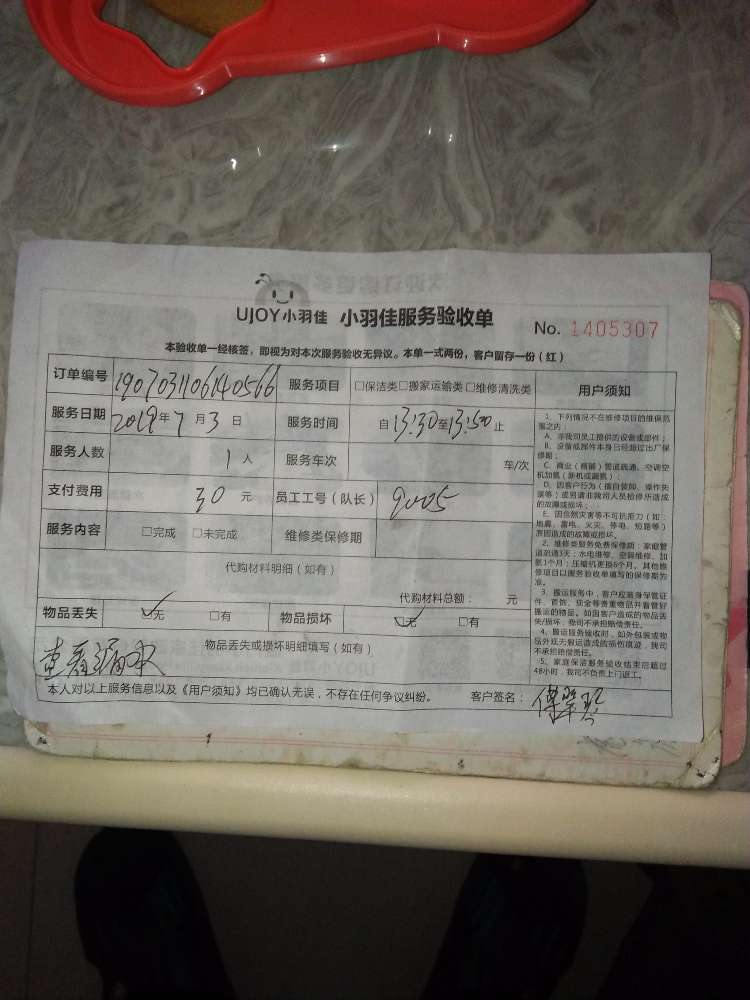 UJOY小羽佳 小羽佳服务验收单 No. 1405307
本验收单一经核签，即视为对本次服务验收无异议。本单一式两份，客户留存一份（红）
订单编号 1907031106140566 服务项目 □保洁类□搬家运输类□维修清洗类 用户须知
服务日期 2019年7月3日 服务时间 自13:30至13:50止
服务人数 1人 服务车次 车/次
支付费用 30元 员工工号（队长） 9005
服务内容 □完成 □未完成 维修类保修期
代购材料明细（如有）
代购材料总额： 元
物品丢失 ☑无 □有 物品损坏 ☑无 □有
物品丢失或损坏明细填写（如有）
查看漏水
本人对以上服务信息以及《用户须知》均已确认无误，不存在任何争议纠纷。 客户签名：
1、下列情况不在维修项目的维保范
围之内：
A、非我司员工提供的设备或部件；
B、设备或部件本身已经超过出厂保
修期；
C、商业（商铺）管道疏通、空调空
机加氟（新机或漏氟）
D、因客户行为（擅自装卸、操作失
误等）或另请非我司人员检修所造成
的故障或损坏；
E、因自然灾害等不可抗拒力（如：
地震、雷电、火灾、停电、短路等）
原因造成的故障或损坏。
2、维修类服务免费保修期：家庭管
道疏通3天；水电维修、空调维修、加
氟1个月；压缩机更换6个月。其他维
修项目以服务验收单填写的保修期为
准。
3、搬运服务中，客户应随身保管证
件、首饰、现金等贵重物品并看管好
搬运的物品。如因客户造成的物品丢
失/损坏，我司不承担赔偿责任。
4、搬运服务验收时，如外包装或物
品外观无搬运造成的损伤痕迹，我司
不承担赔偿责任。
5、家庭保洁服务验收结束后超过
48小时，我司不负责上门返工。